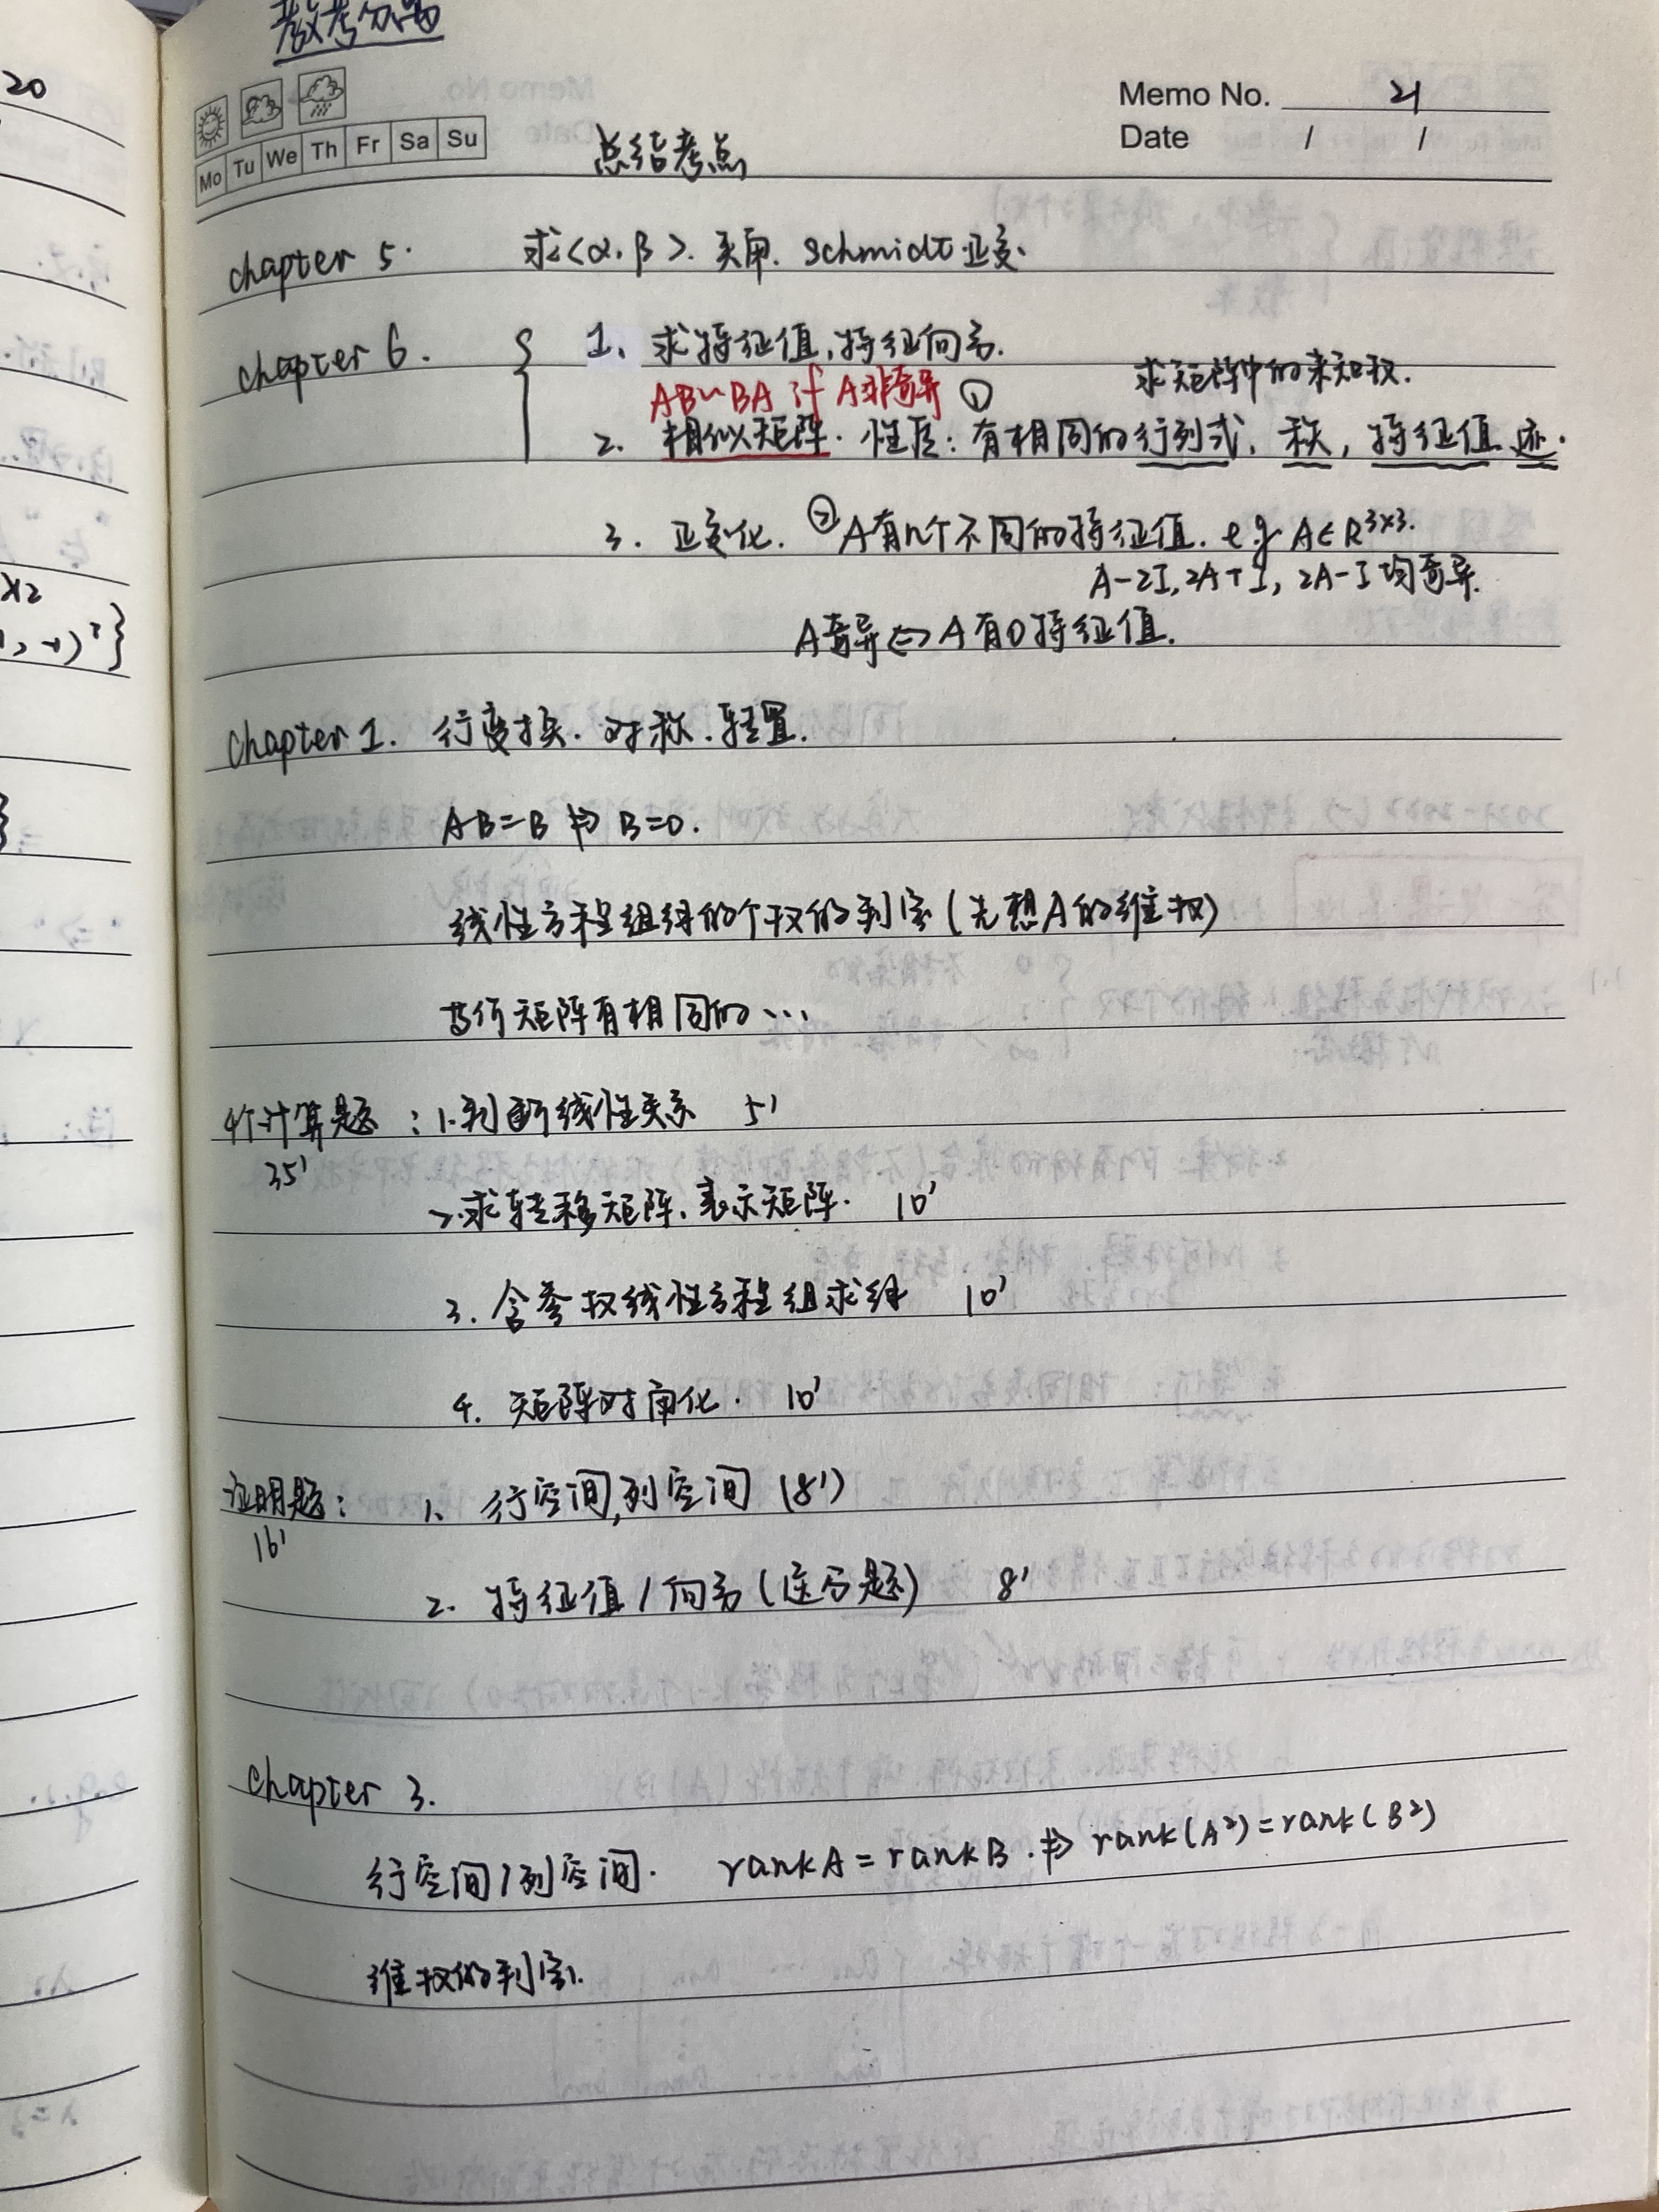 教考分离
20
Memo No. 21
Mo Tu We Th Fr Sa Su
Date / /
总结考点
chapter 5. 求<α,β>. 夹角. Schmidt 正交.
chapter 6. { 1、求特征值,特征向量.
求矩阵中的未知数.
AB~BA if A非奇异 ①
2. 相似矩阵. 性质: 有相同的行列式, 秩, 特征值、迹.
3. 正交化. ②A有n个不同的特征值. e.g A∈R³ˣ³.
A-2I, 2A+I, 2A-I 均奇异.
A奇异⇔A有0特征值.
chapter 1. 行变换. 对称. 转置.
AB=B ⇏ B=0.
线性方程组解的个数的判定 (先想A的维数)
与行矩阵有相同的…
4个计算题: 1.判断线性关系 5'
35'
2.求转移矩阵、表示矩阵. 10'
3. 含参数线性方程组求解 10'
4. 矩阵对角化. 10'
证明题: 1、行空间,列空间 (8')
16'
2. 特征值/向量 (送分题) 8'
chapter 3.
行空间/列空间. rankA=rankB. ⇏ rank(A²)=rank(B²)
维数的判定.
x2
1,-1)ᵀ}